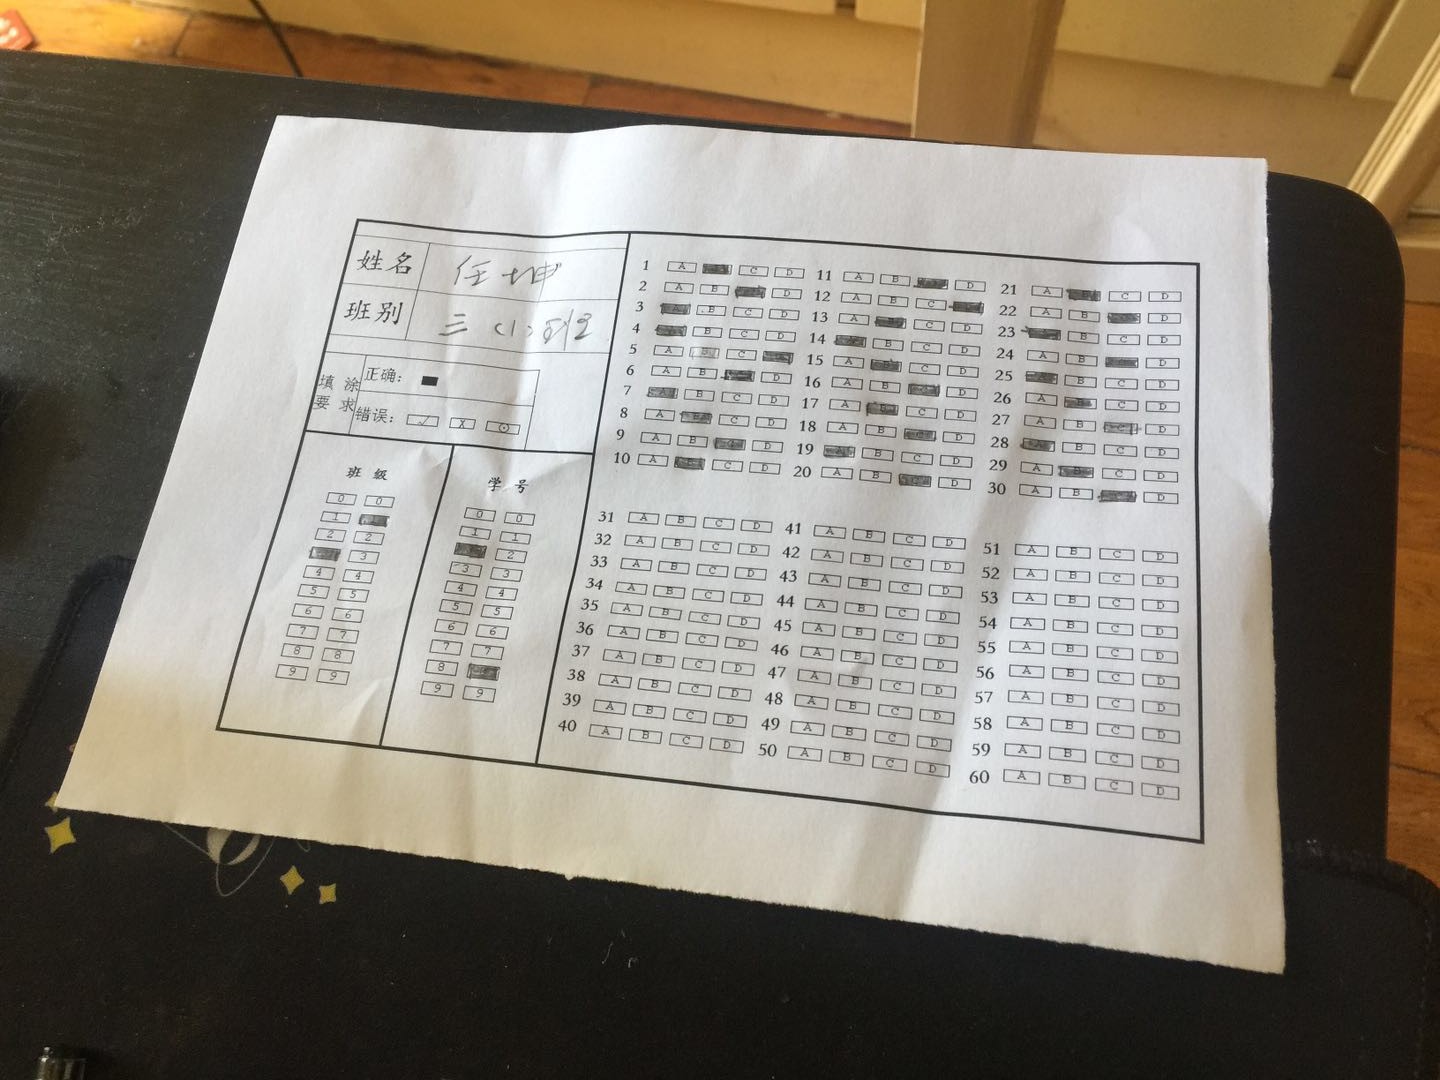 姓名 任坤
班别 三（1）班
填涂要求
正确：
错误：
班级
0 0
1
2 2
3
4 4
5 5
6 6
7 7
8 8
9 9
学号
0 0
1 1
2
3 3
4 4
5 5
6 6
7 7
8
9 9
1 A C D
2 A B D
3 A B C D
4 B C D
5 A B C
6 A B D
7 A B C D
8 A B C D
9 A B C D
10 A C D
11 A B D
12 A B C
13 A B C D
14 B C D
15 A B C D
16 A B C D
17 A B C D
18 A B C D
19 A B C D
20 A B C D
21 A C D
22 A B D
23 B C D
24 A B D
25 B C D
26 A B C D
27 A B C D
28 A B C D
29 A B C D
30 A B D
31 A B C D
32 A B C D
33 A B C D
34 A B C D
35 A B C D
36 A B C D
37 A B C D
38 A B C D
39 A B C D
40 A B C D
41 A B C D
42 A B C D
43 A B C D
44 A B C D
45 A B C D
46 A B C D
47 A B C D
48 A B C D
49 A B C D
50 A B C D
51 A B C D
52 A B C D
53 A B C D
54 A B C D
55 A B C D
56 A B C D
57 A B C D
58 A B C D
59 A B C D
60 A B C D